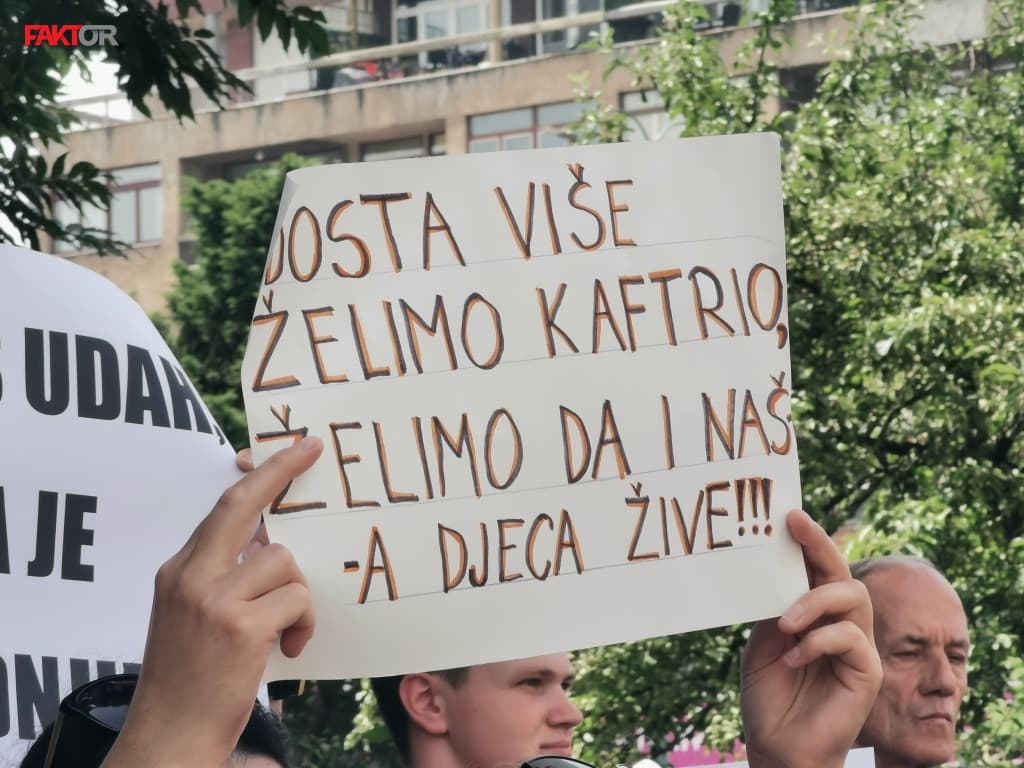 FAKTOR
DOSTA VIŠE
ŽELIMO KAFTRIO,
ŽELIMO DA I NAŠ
-A DJECA ŽIVE!!!
UDAH,
JE